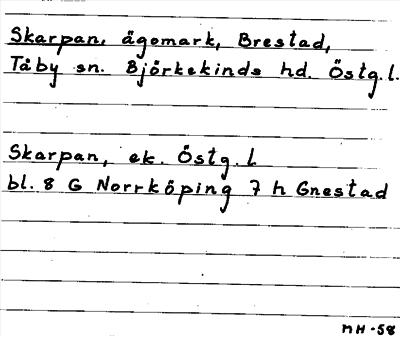 Skarpan, ägomark, Brestad,
Tåby sn. Björkekinds hd. Östg.l.
Skarpan, ek. Östg.l
bl. 8 G Norrköping 7 h Gnestad
MH-58